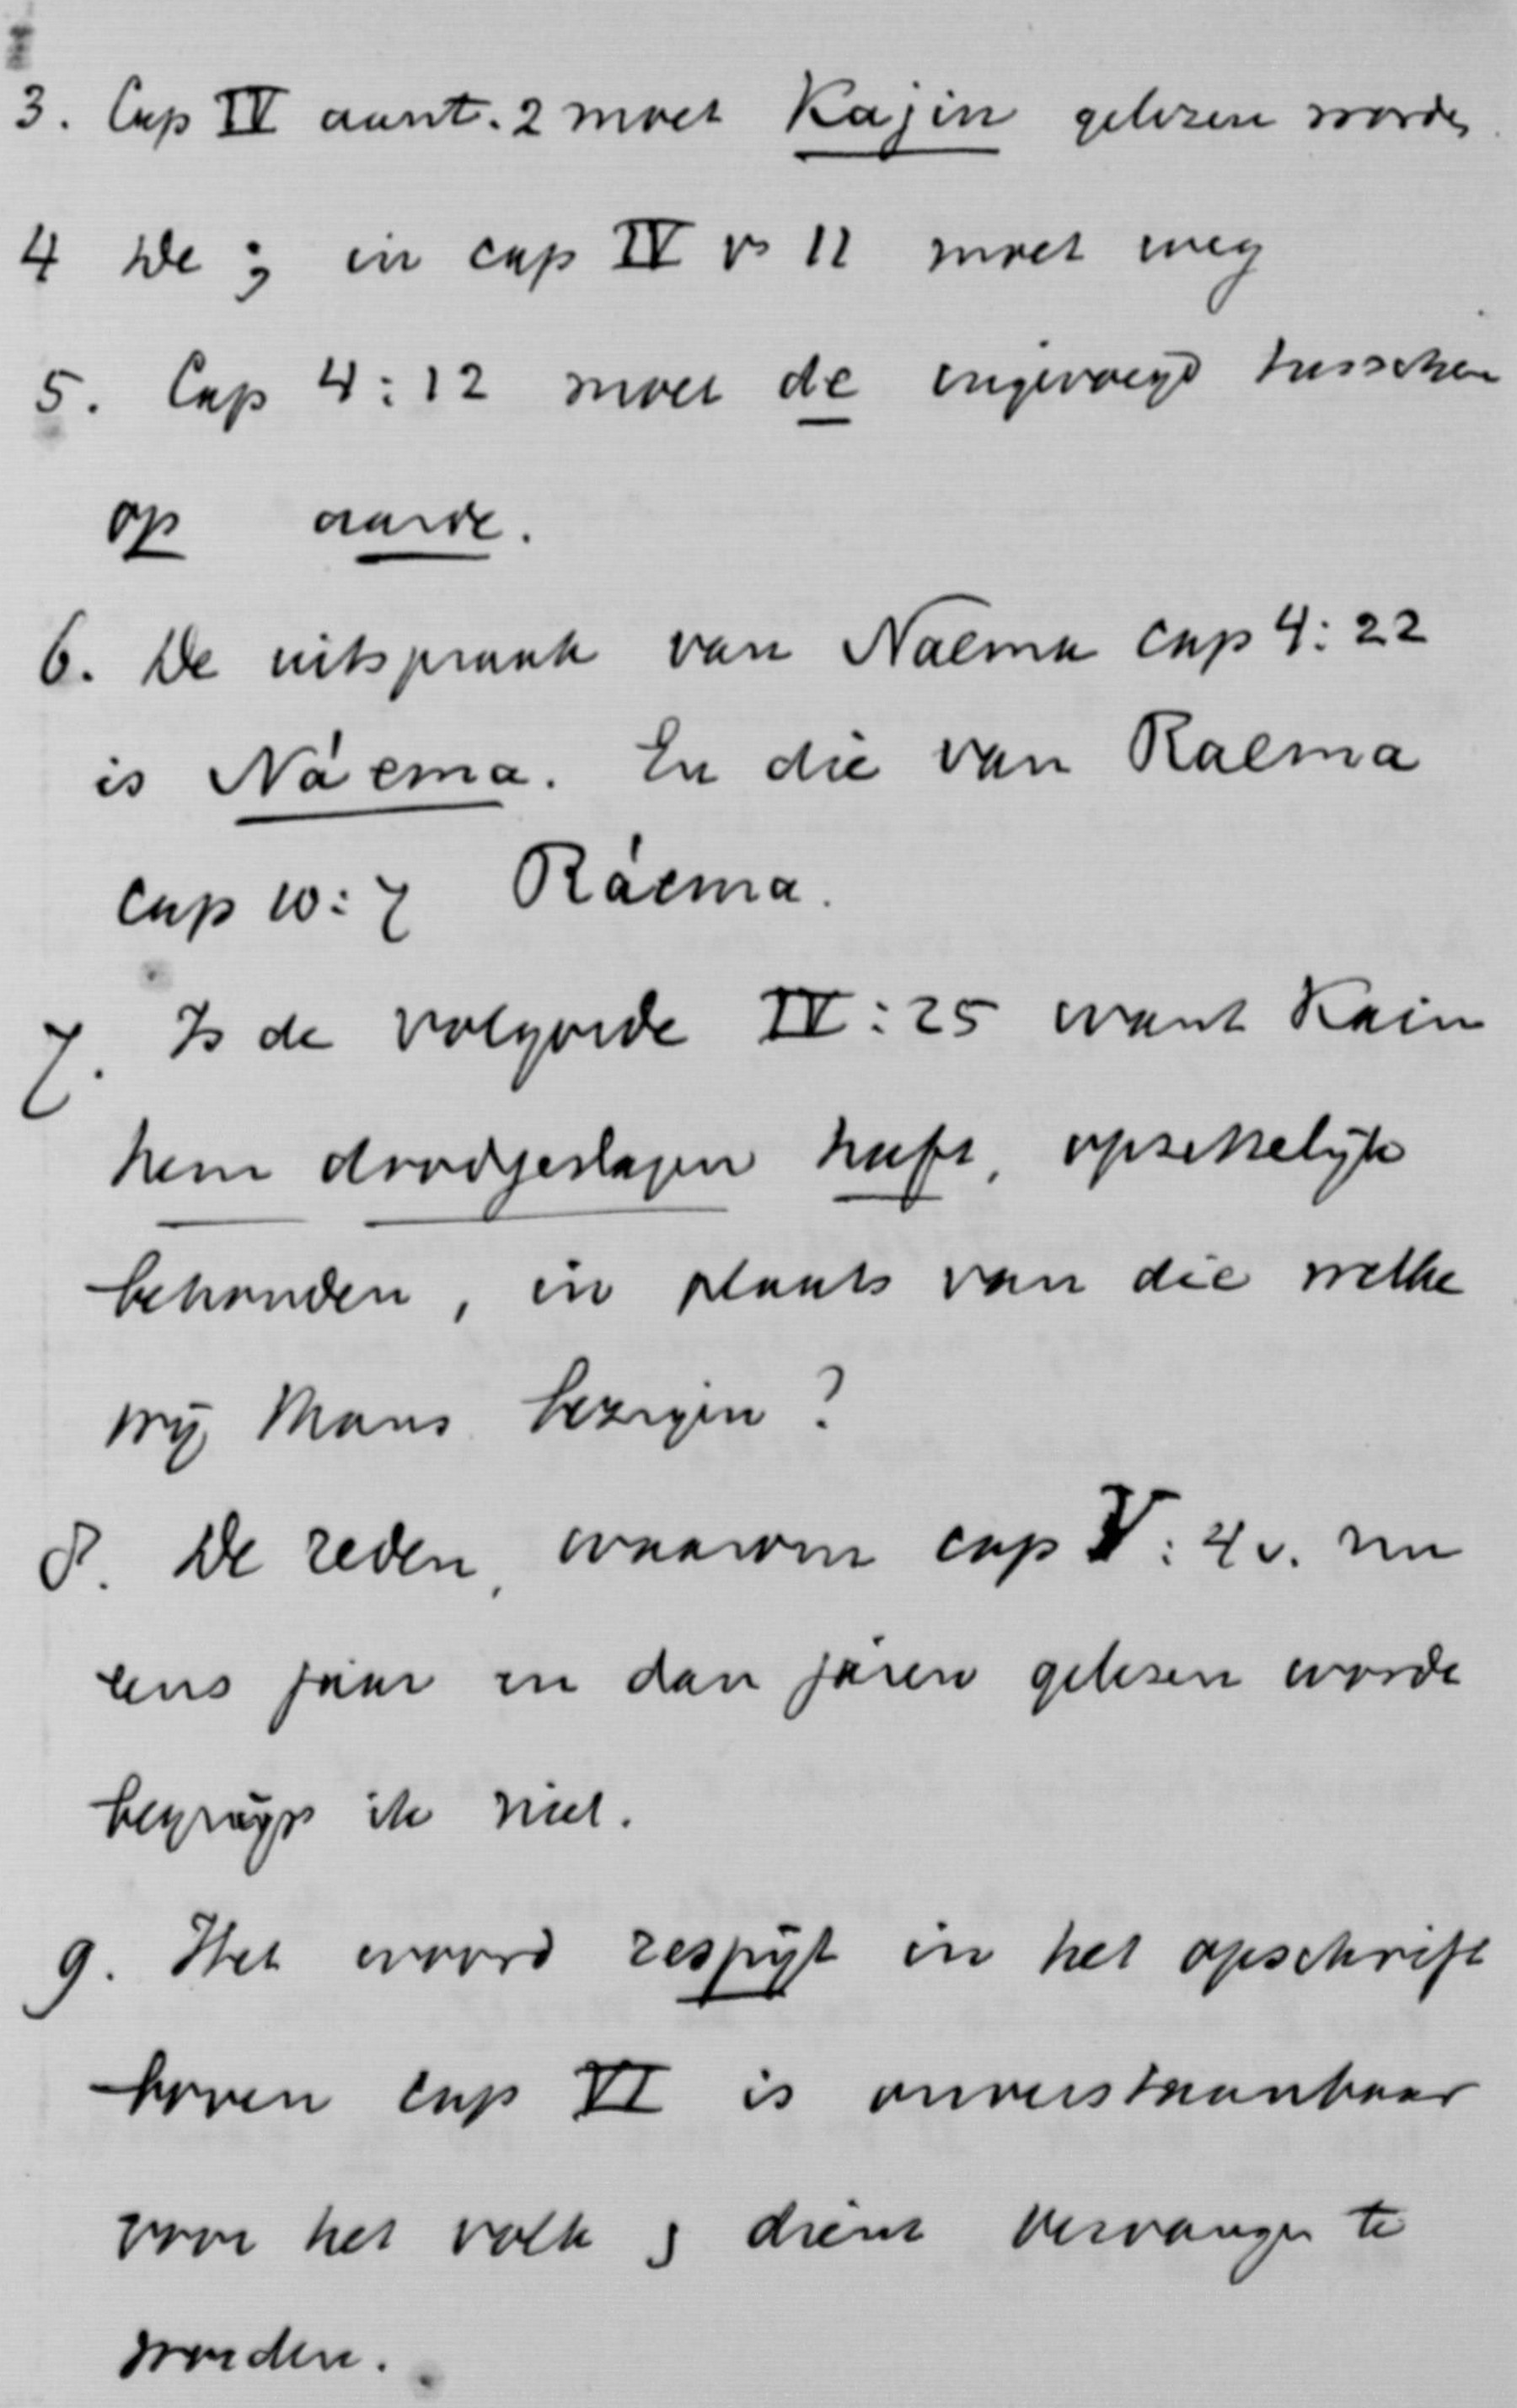 3. Cap IV aant. 2 moet Kajin gelezen worden
4 De ; in cap IV vs 11 moet weg
5. Cap 4:12 moet de ingevoegd tusschen
op aarde.
6. De uitspraak van Naema cap 4:22
is Náema. En die van Raema
cap 10:7 Ráema.
7. Is de volgorde IV:25 want Kain
hem doodgeslagen heeft, opzettelijk
behouden, in plaats van die welke
wij thans bezigen?
8. De reden, waarom cap V: 4 v. nu
eens jaar en dan jaren gelezen worde
begrijp ik niet.
9. Het woord respijt in het opschrift
boven cap VI is onverstaanbaar
voor het volk ; dient vervangen te
worden.